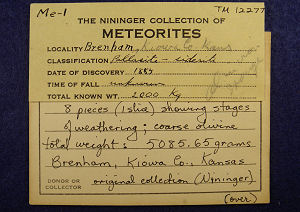 Me-1
TM 12277
THE NININGER COLLECTION OF
METEORITES
LOCALITY Brenham, Kiowa Co. Kans
CLASSIFICATION Pallasite - siderite
DATE OF DISCOVERY 1885
TIME OF FALL unknown
TOTAL KNOWN WT. 2000 Kg
8 pieces (1slice) showing stages
of weathering; coarse olivine
total weight: 5085.65 grams
Brenham, Kiowa Co., Kansas
DONOR OR
COLLECTOR original collection (Nininger)
(over)